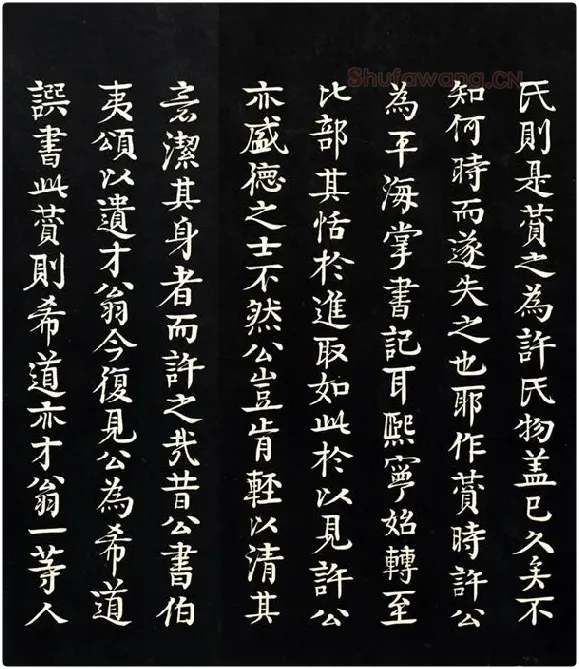 Shufawang.CN
氏則是賛之為許氏物盖已久矣不
知何時而遂失之也耶作賛時許公
為平海掌書記耳熙寧始轉至
比部其恬於進取如此於以見許公
亦盛德之士不然公豈肯輕以清其
意潔其身者而許之哉昔公書伯
夷頌以遺才翁今復見公為希道
譔書此賛則希道亦才翁一等人